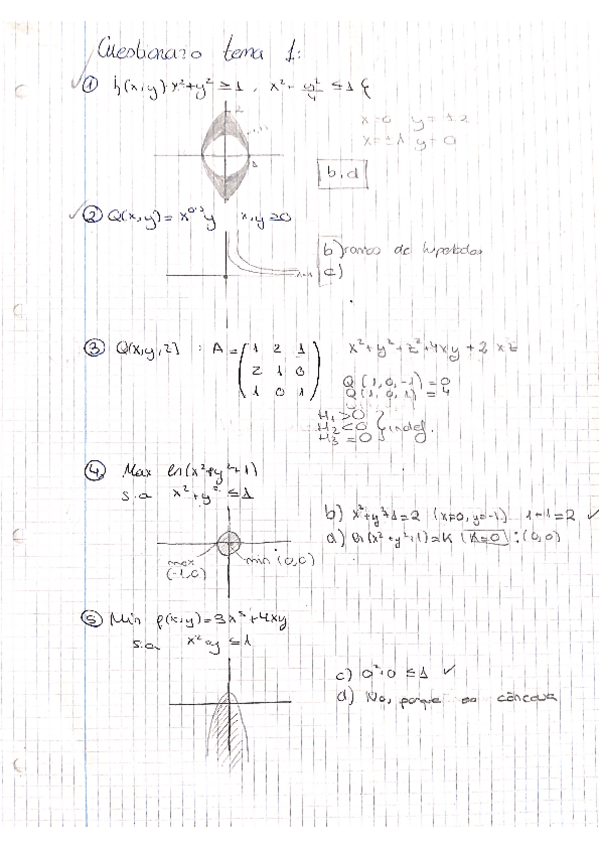 Cuestionario tema 1:
① {(x,y) x²+y² ≥ 1, x² - y²/4 ≤ 1{
x=0 y=±2
x=±1 y=0
b,d
② Q(x,y) = x^0'5 y x,y ≥ 0
b) ramas de hipérbolas
c)
③ Q(x,y,z) : A = (1 2 1
2 1 0
1 0 1)
x²+y²+z²+4xy+2xz
Q(1,0,-1) = 0
Q(1,0,1) = 4
H₁>0
H₂<0 } indef.
H₃=0
④ Max ln(x²+y²+1)
s.a x²+y² ≤ 1
b) x²+y²+1=2 (x=0, y=-1) 1-1=2 ✓
a) ln(x²+y²+1)=K (K=0) : (0,0)
max
(-1,0)
min (0,0)
⑤ Min f(x,y)=3x³+4xy
s.a x²+y ≤ 1
c) 0²+0 ≤ 1 ✓
d) No, porque es cóncava